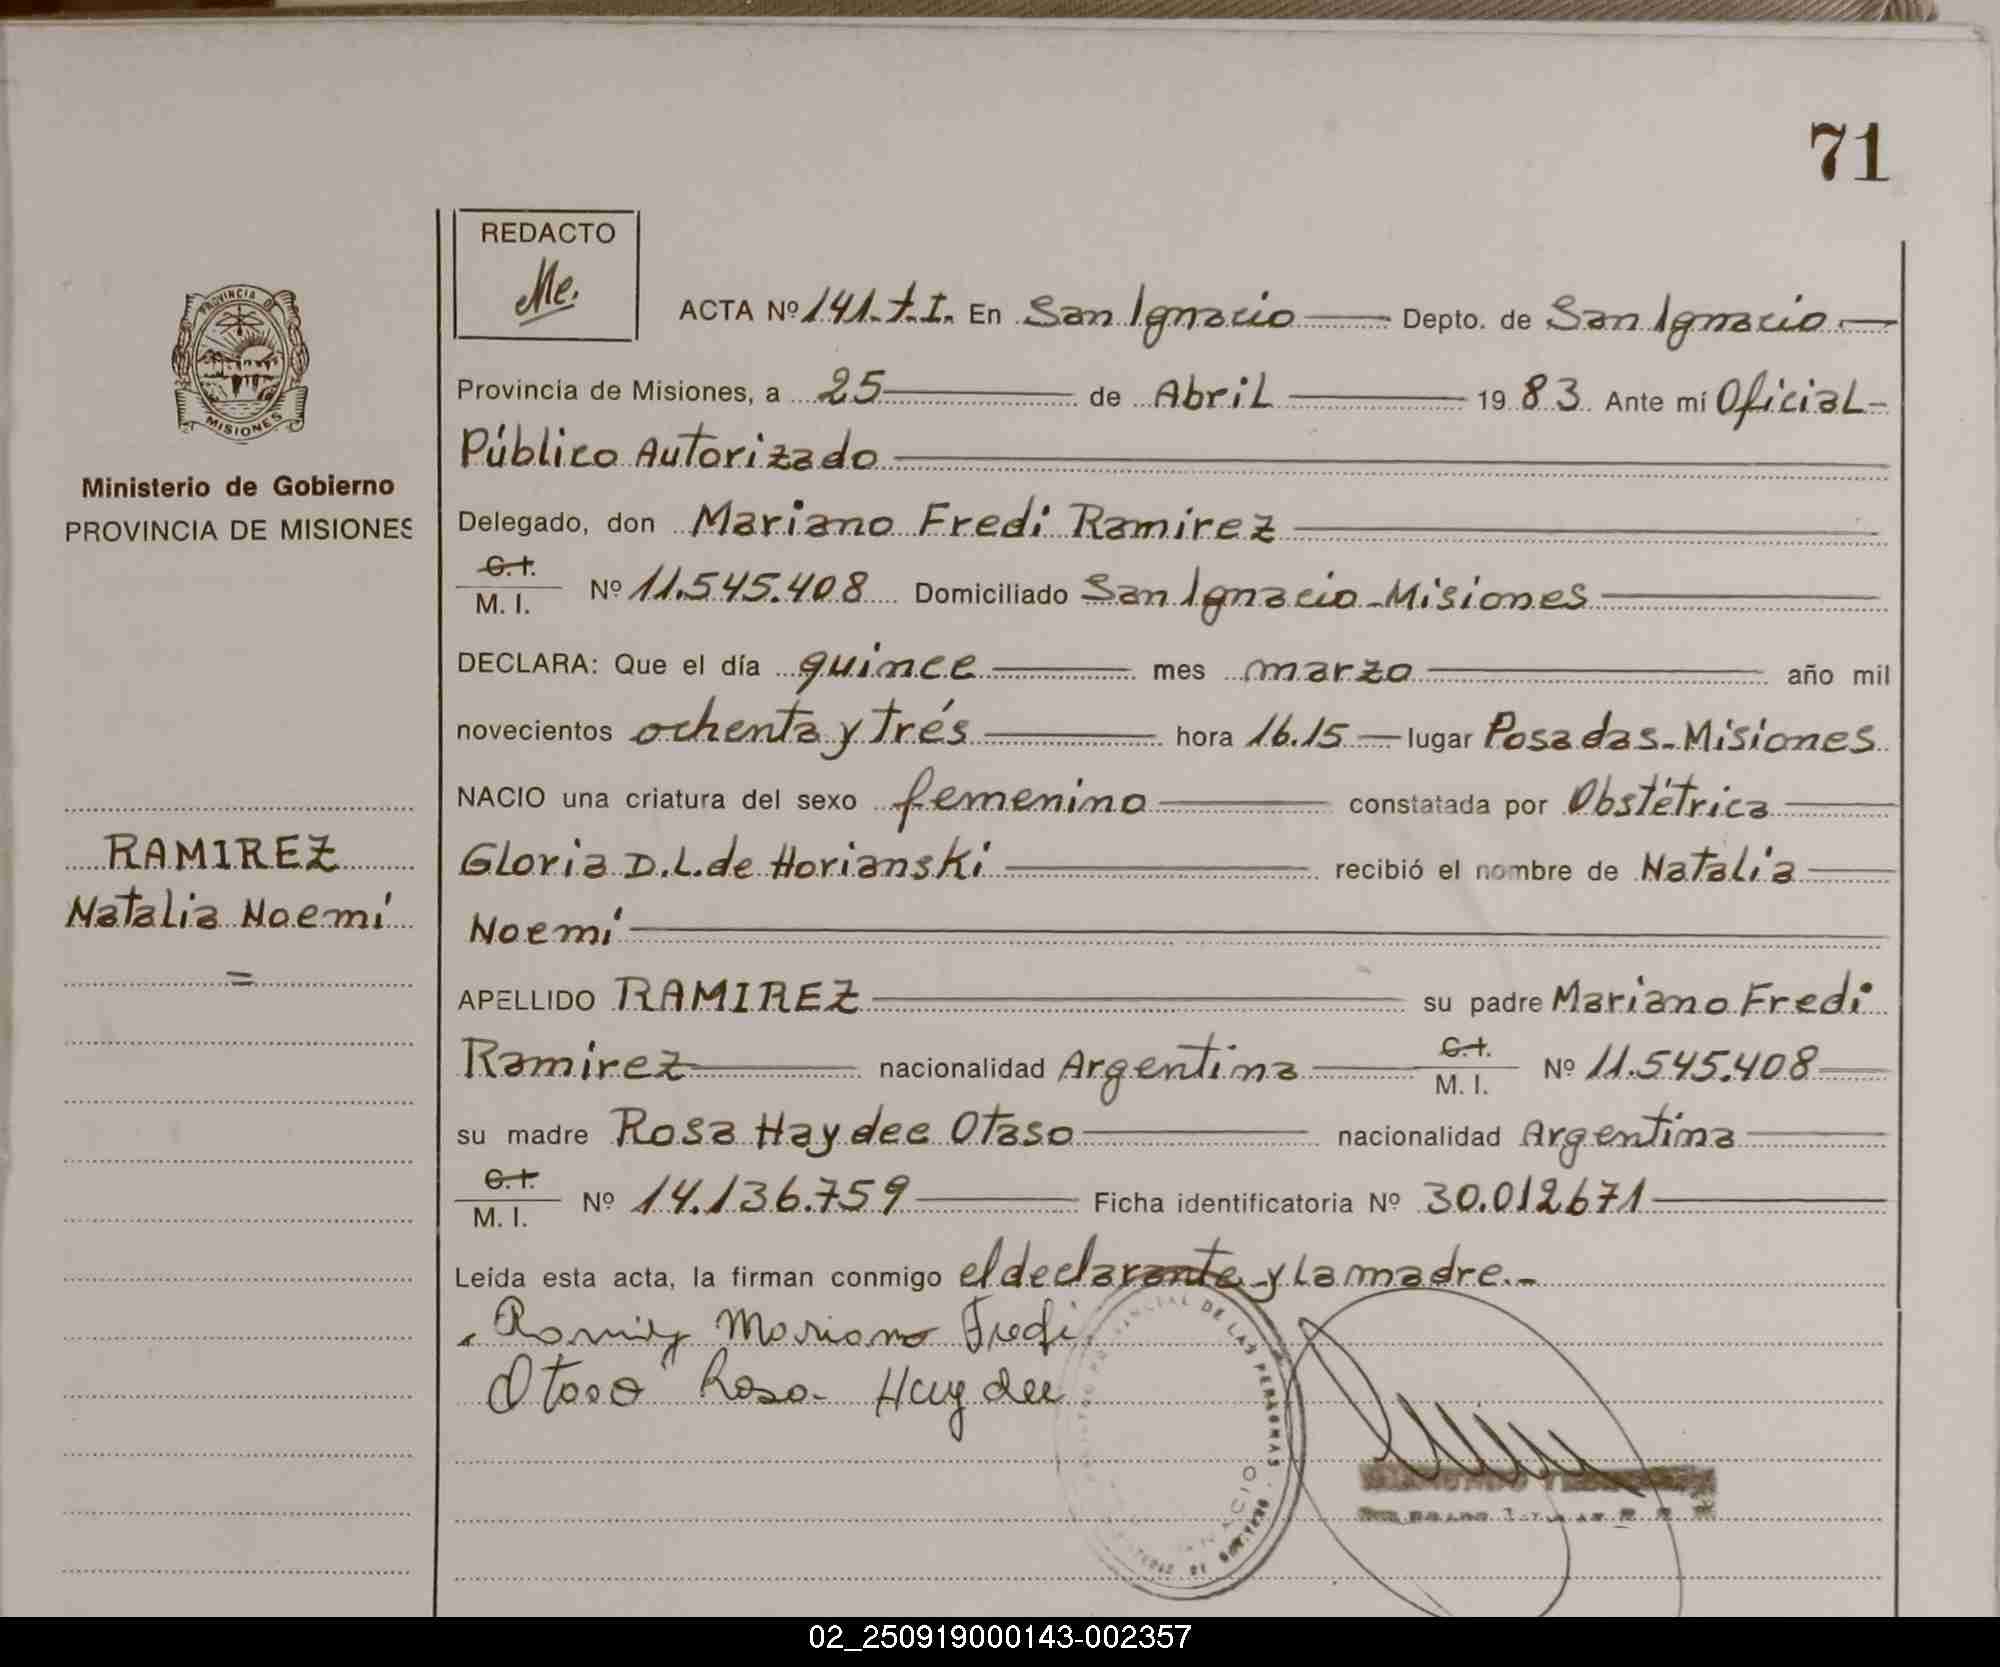 71
REDACTO
Me.
PROVINCIA DE
MISIONES
ACTA Nº 141.T.I. En San Ignacio Depto. de San Ignacio.
Provincia de Misiones, a 25 de Abril 1983. Ante mí Oficial
Público Autorizado
Ministerio de Gobierno
PROVINCIA DE MISIONES
Delegado, don Mariano Fredi Ramirez
C.I.
M. I. Nº 11.545.408 Domiciliado San Ignacio-Misiones
DECLARA: Que el día quince mes marzo año mil
novecientos ochenta y trés hora 16.15 lugar Posadas-Misiones
NACIO una criatura del sexo femenino constatada por Obstétrica
RAMIREZ
Natalia Noemí
=
Gloria D.L. de Horianski recibió el nombre de Natalia
Noemí
APELLIDO RAMIREZ su padre Mariano Fredi
Ramirez nacionalidad Argentina C.I. M. I. Nº 11.545.408
su madre Rosa Haydee Otaso nacionalidad Argentina
C.I.
M. I. Nº 14.136.759 Ficha identificatoria Nº 30.012671
Leída esta acta, la firman conmigo el declarante y la madre.-
Ramirez Mariano Fredi
Otaso Rosa Haydee
DE LAS PERSONAS
02_250919000143-002357